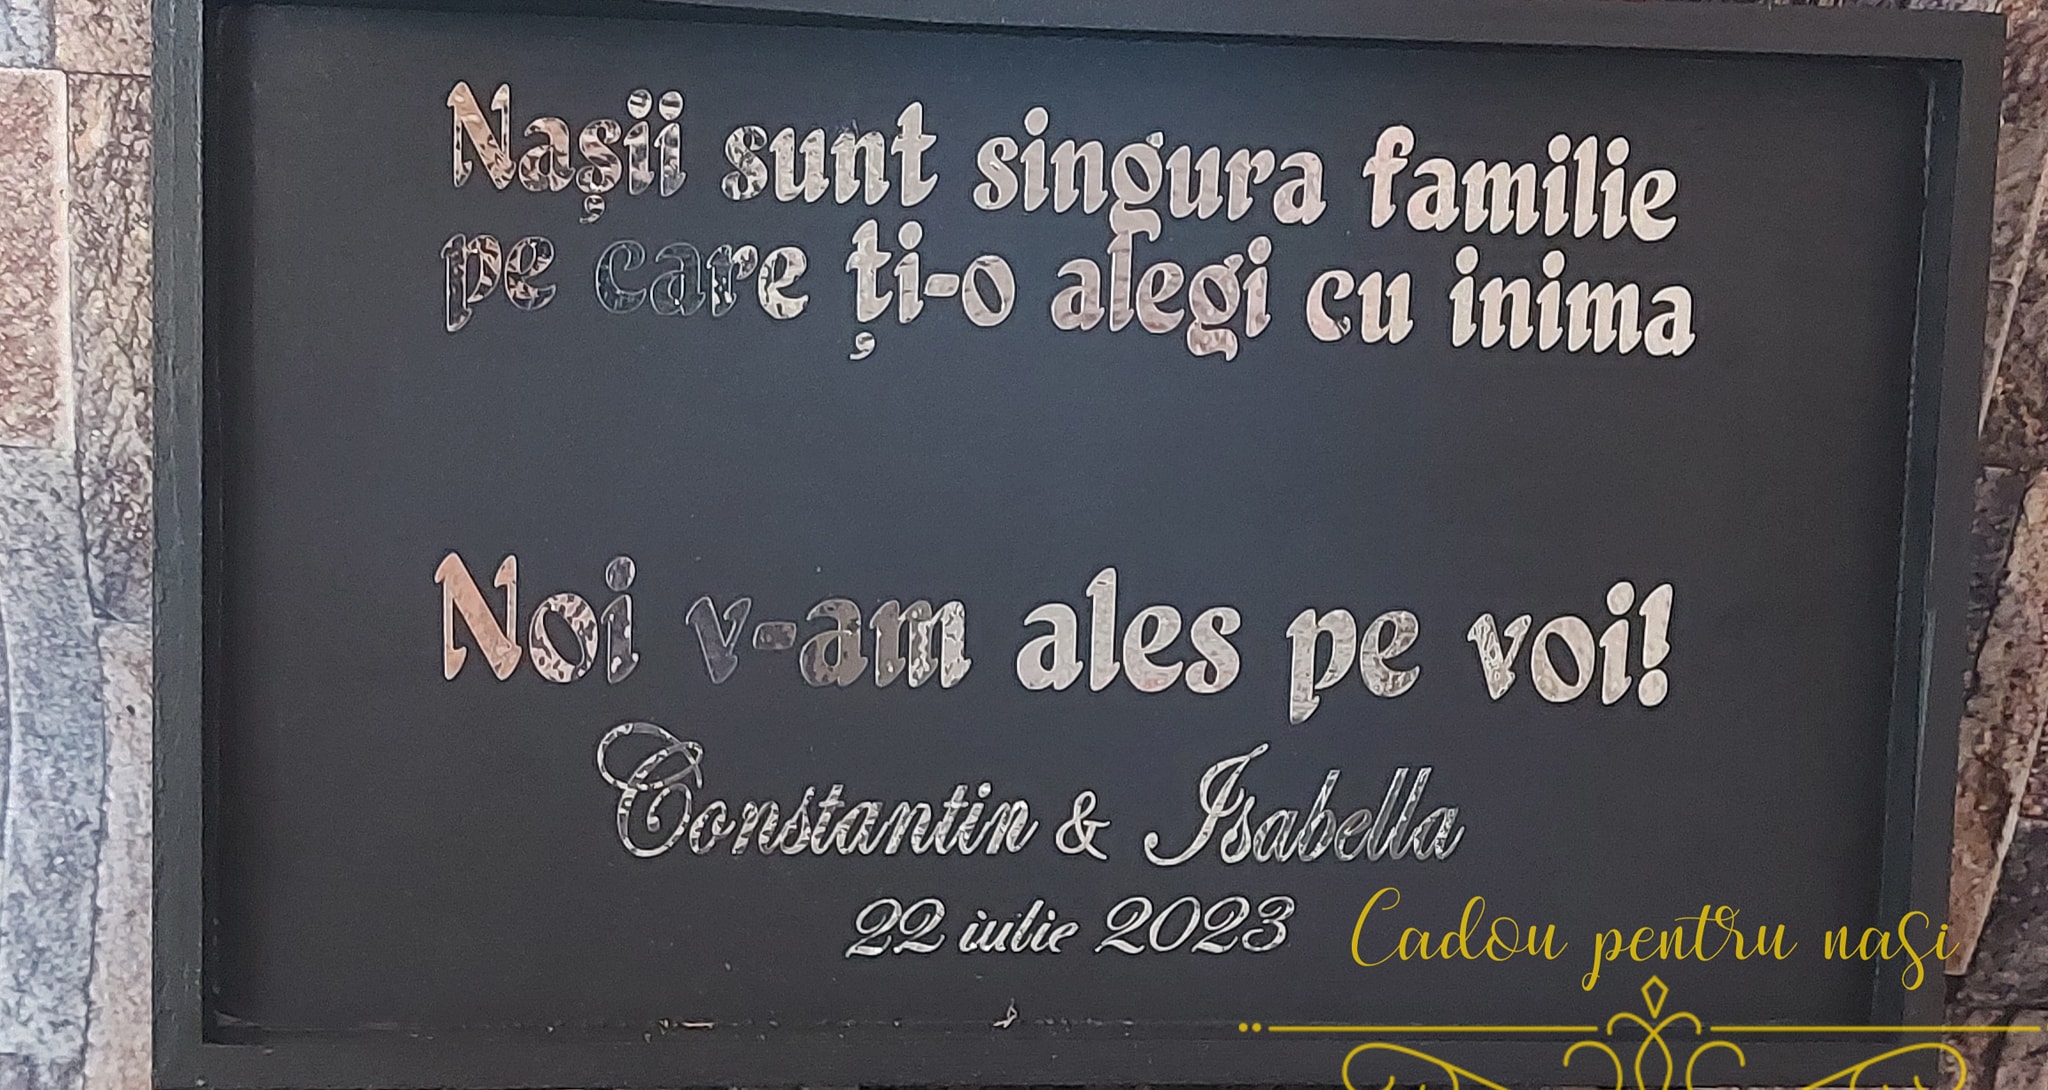 Nașii sunt singura familie
pe care ți-o alegi cu inima
Noi v-am ales pe voi!
Constantin & Isabella
22 iulie 2023
Cadou pentru nași